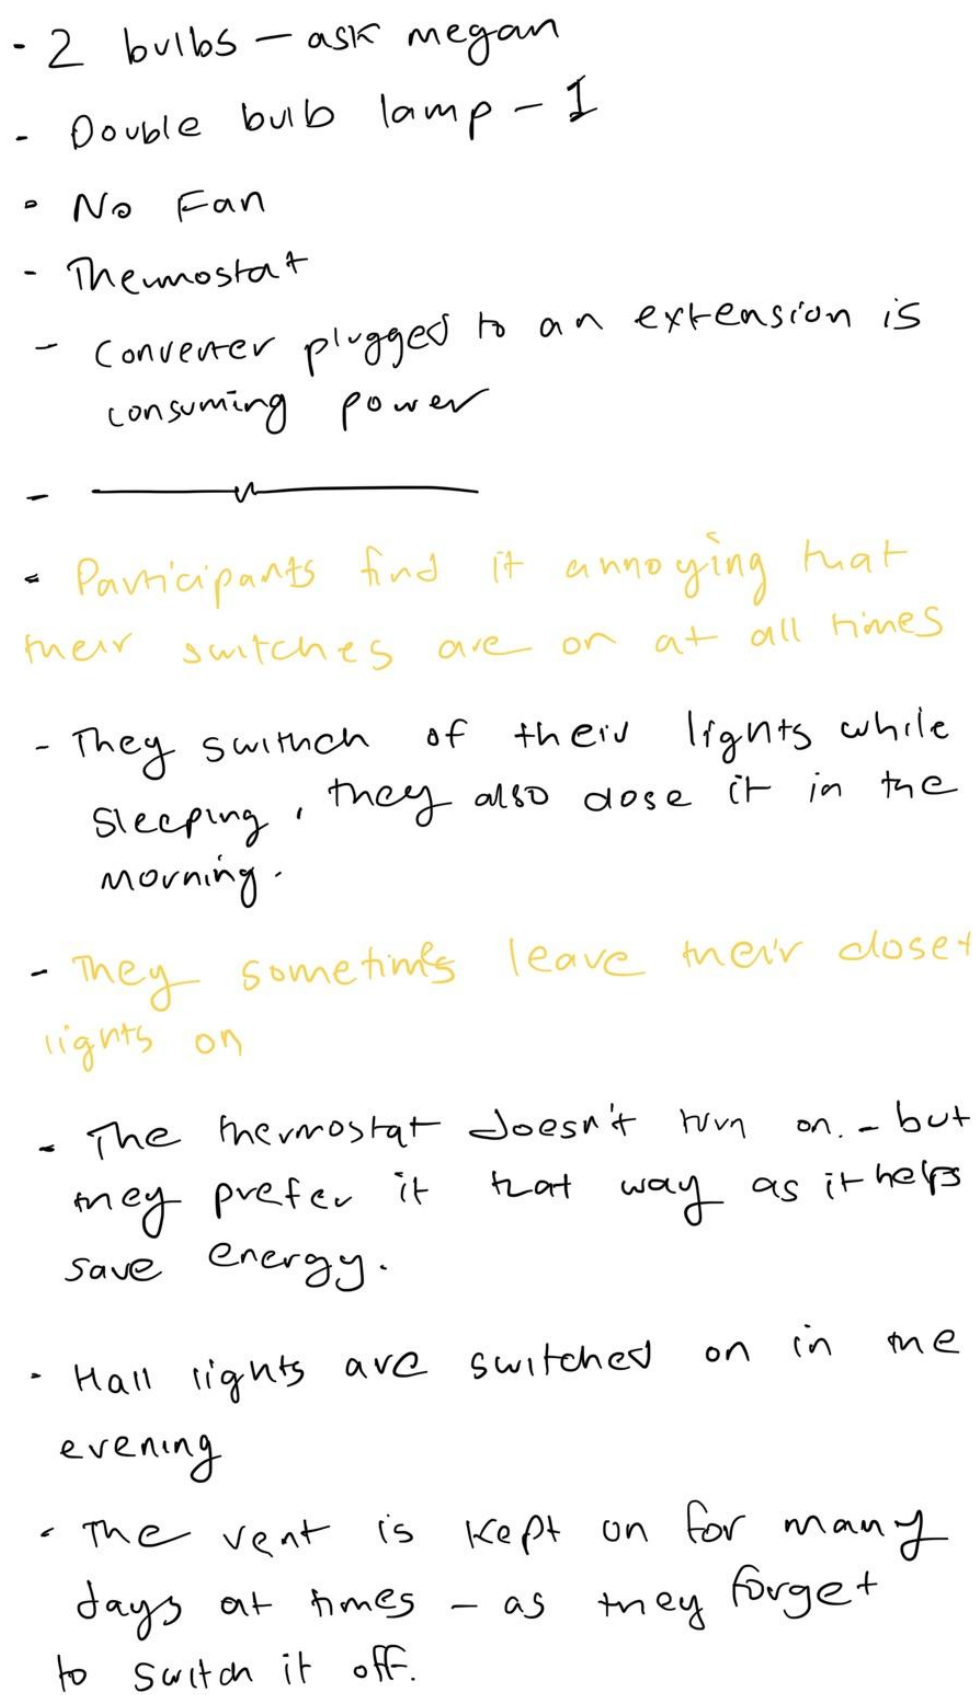 - 2 bulbs – ask megan
- Double bulb lamp – I
- No Fan
- Thermostat
- Converter plugged to an extension is
consuming power
-
- Participants find it annoying that
their switches are on at all times
- They swithch of their lights while
sleeping, they also close it in the
morning.
- They sometimes leave their closet
lights on
- The thermostat doesn't turn on. - but
they prefer it that way as it helps
save energy.
- Hall lights are switched on in the
evening
- The vent is kept on for many
days at times – as they forget
to switch it off.